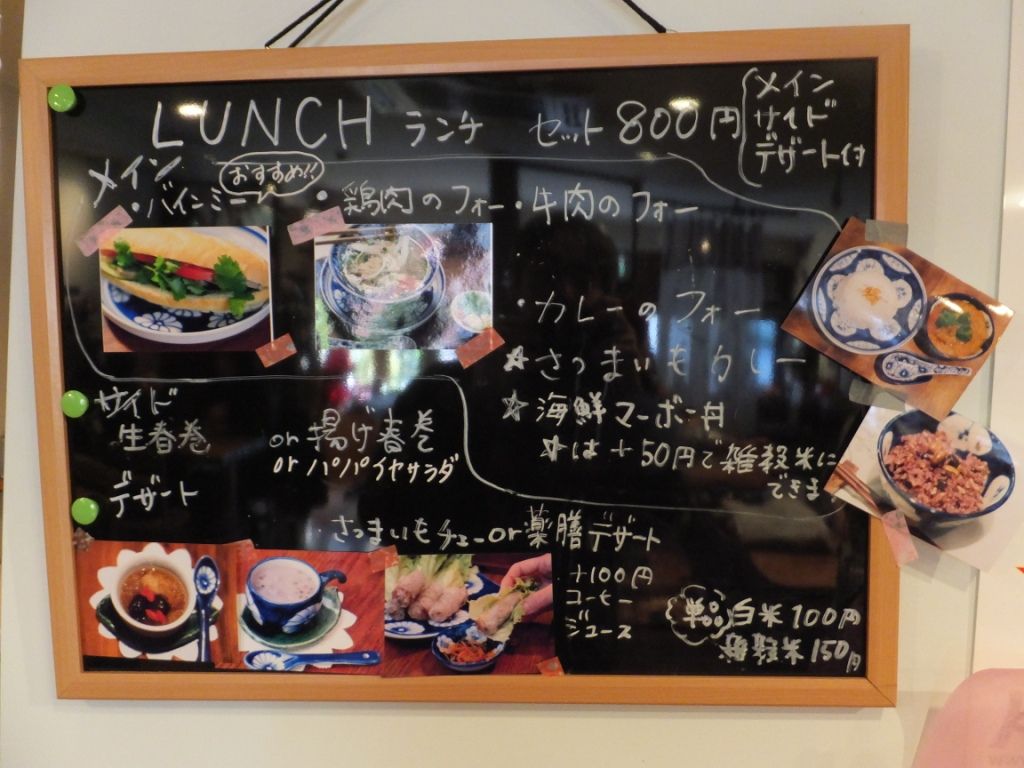 LUNCH ランチ セット 800円
メイン
サイド
デザート付
メイン
おすすめ!!
・バインミー ・鶏肉のフォー ・牛肉のフォー
・カレーのフォー
☆さつまいもカレー
☆海鮮マーボー丼
☆は+50円で雑穀米に
できま
サイド
生春巻 or 揚げ春巻
or パパイヤサラダ
デザート
さつまいもチェー or 薬膳デザート
+100円
コーヒー
ジュース
単品 白米 100円
雑穀米 150円